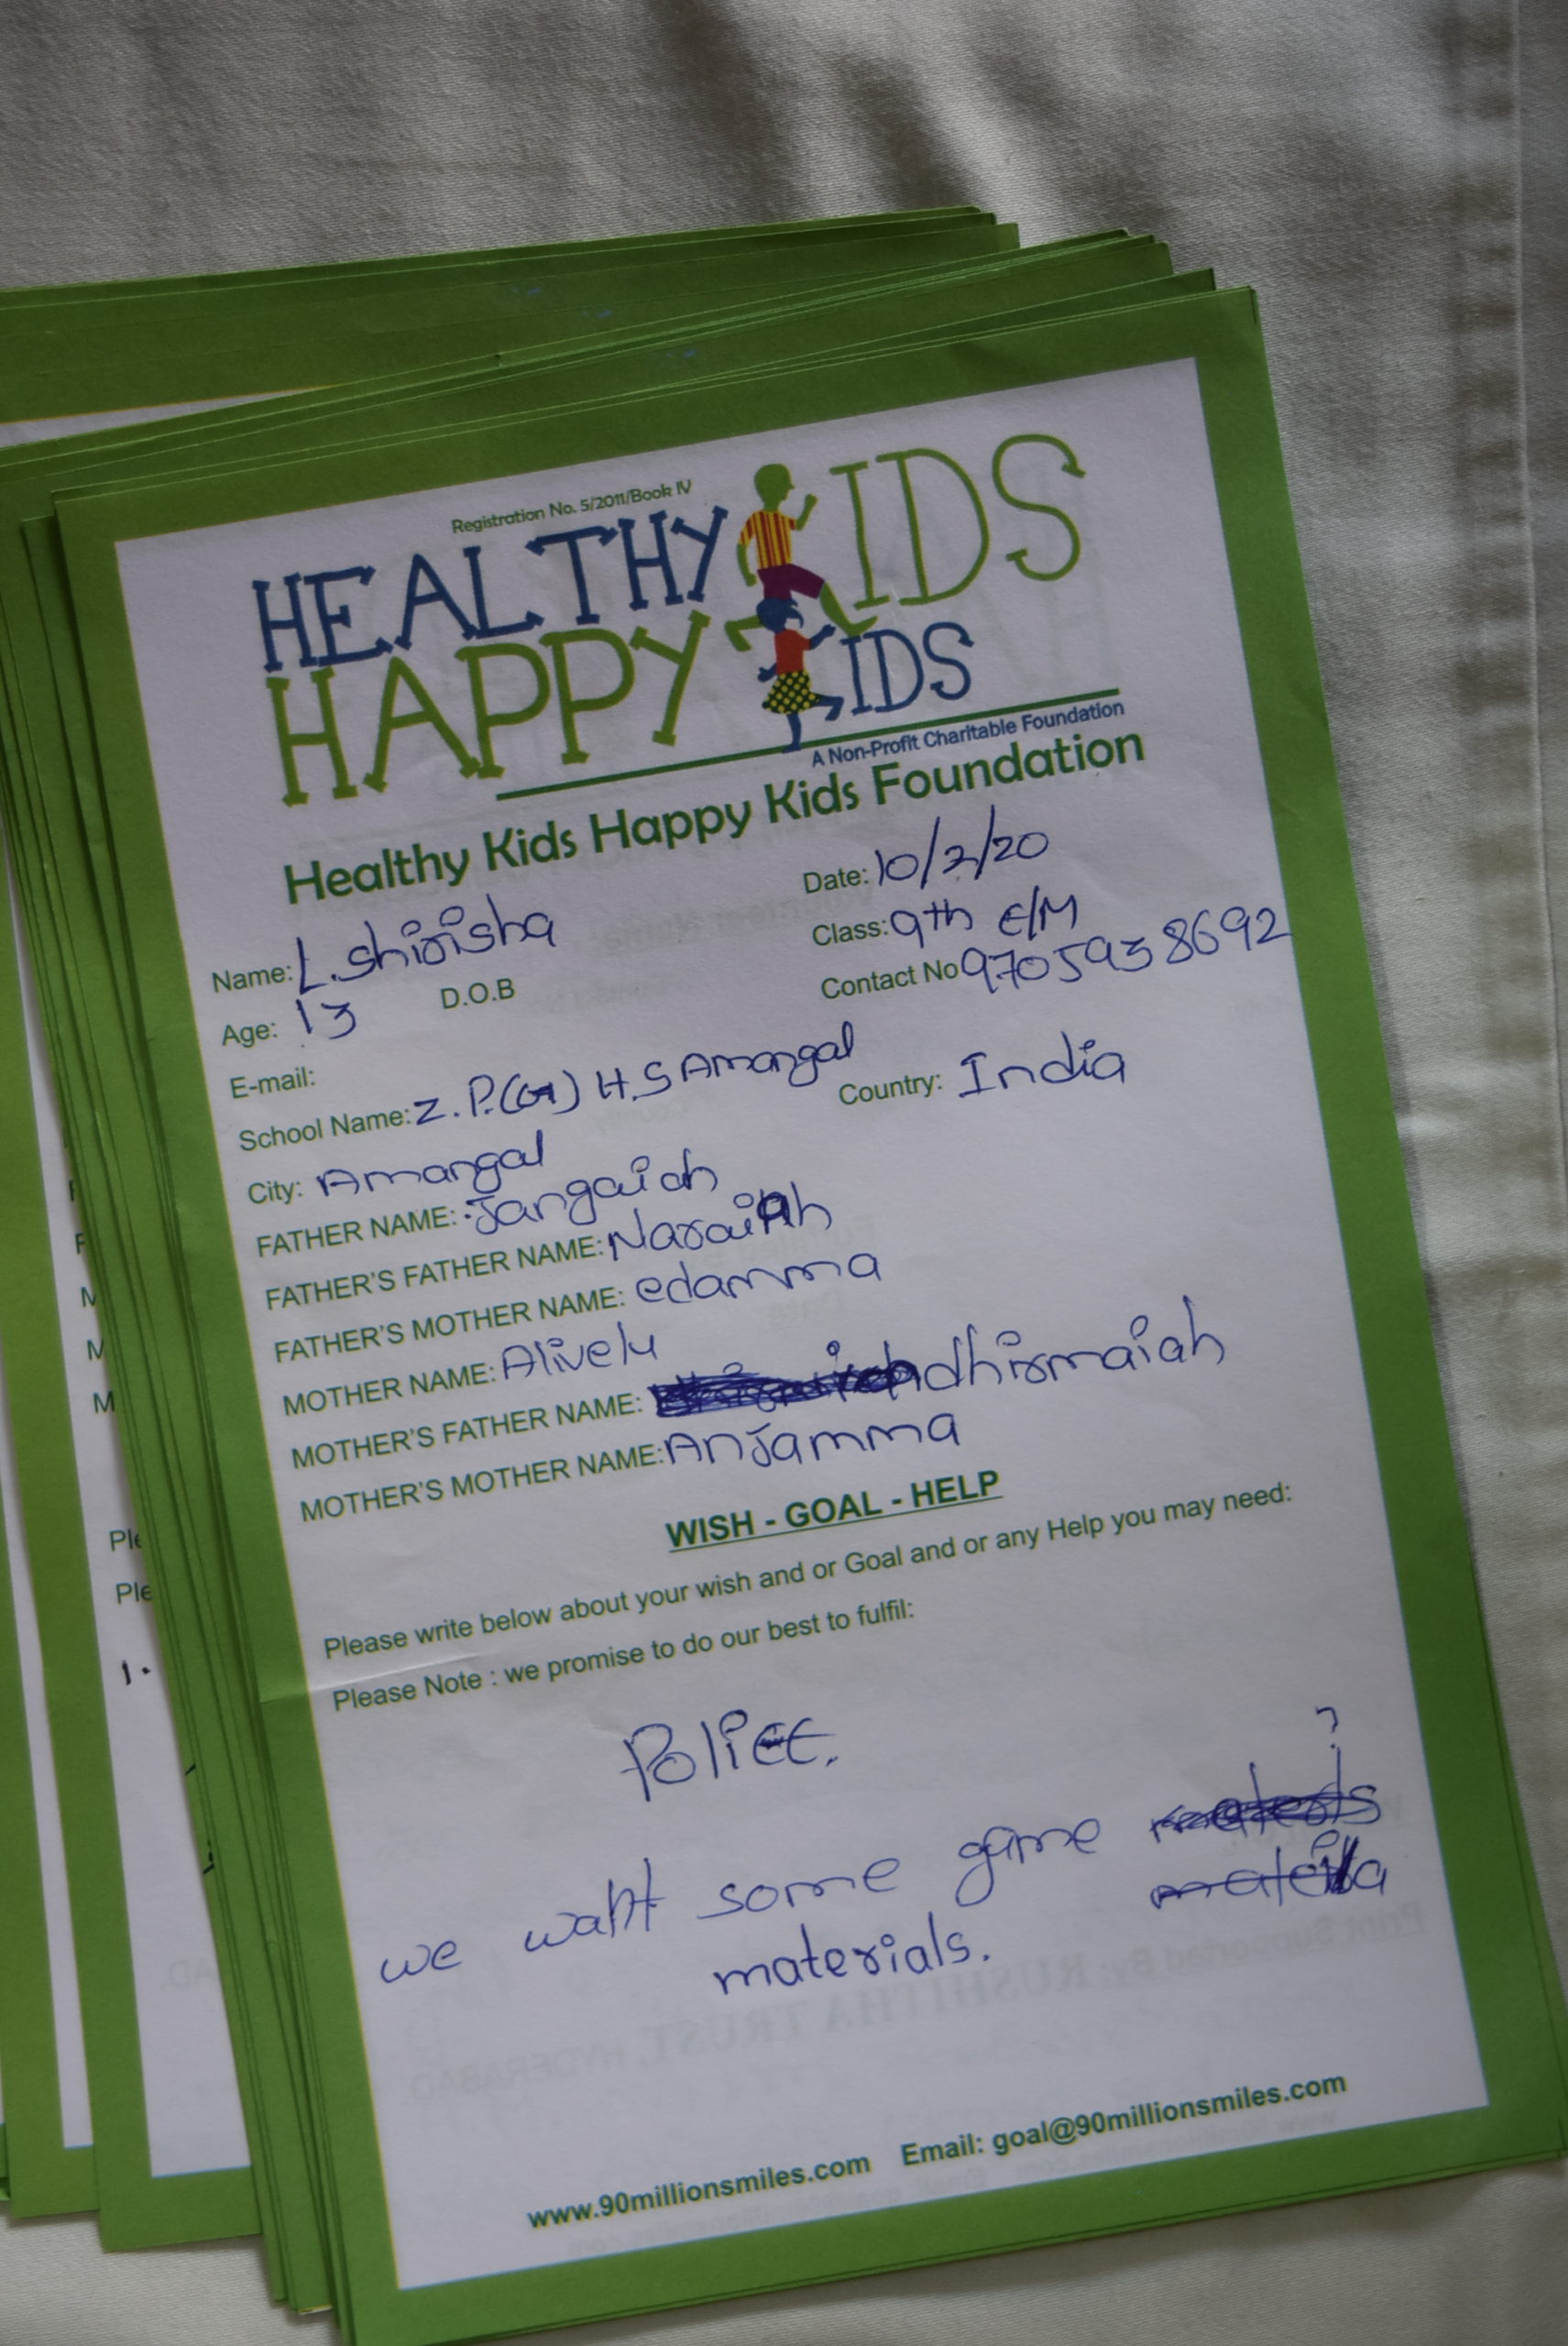 Registration No. 5/2011/Book IV
HEALTHY KIDS
HAPPY KIDS
A Non-Profit Charitable Foundation
Healthy Kids Happy Kids Foundation
Date: 10/2/20
Name: L.shirisha
Class: 9th E/M
Age: 13 D.O.B
Contact No 9705938692
E-mail:
School Name: Z.P.(G) H.S Amangal
Country: India
City: Amangal
FATHER NAME: Jangaiah
FATHER'S FATHER NAME: Naraiah
FATHER'S MOTHER NAME: edamma
MOTHER NAME: Alivelu
MOTHER'S FATHER NAME: dhirmaiah
MOTHER'S MOTHER NAME: Anjamma
WISH - GOAL - HELP
Please write below about your wish and or Goal and or any Help you may need:
Please Note : we promise to do our best to fulfil:
Police.
?
we want some game
materials.
www.90millionsmiles.com Email: goal@90millionsmiles.com
Ple
Ple
1.